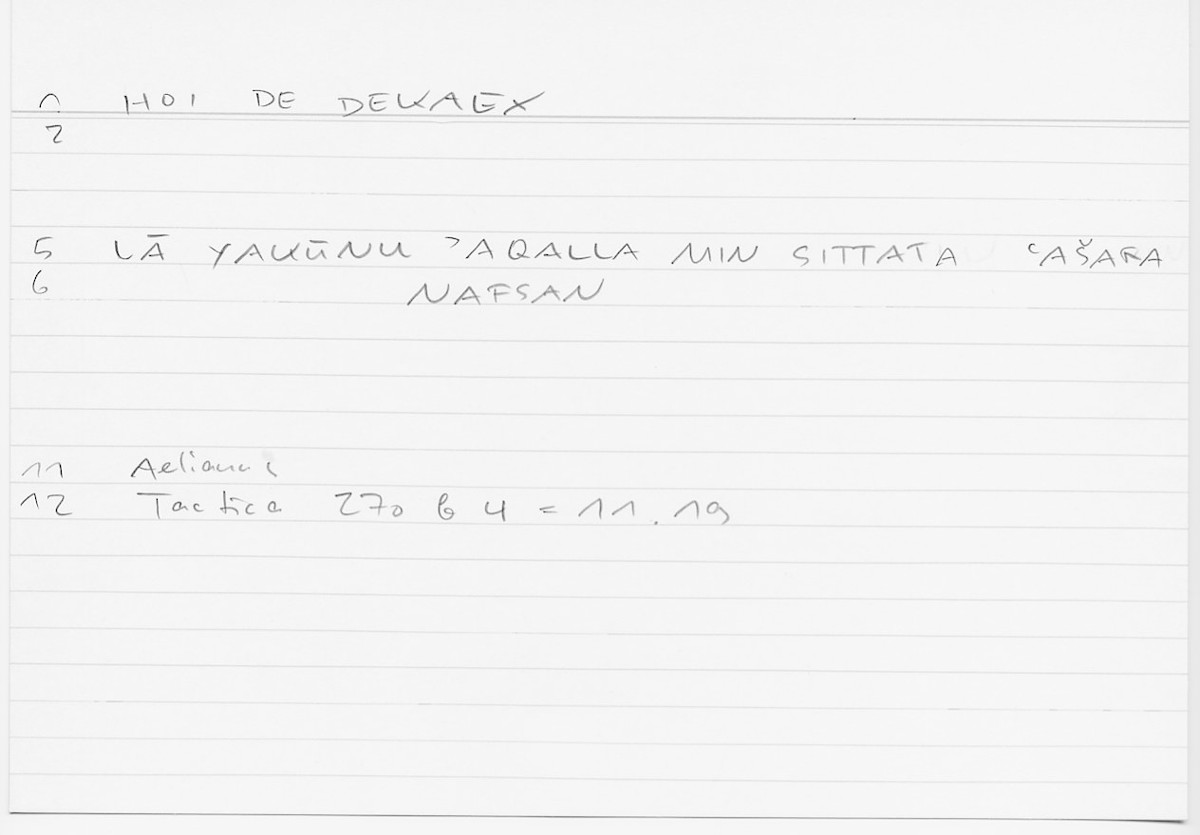 1 HOI DE DEKAEX
2
5 LĀ YAKŪNU ʾAQALLA MIN SITTATA ʿAŠARA
6 NAFSAN
11 Aelianus
12 Tactica 270 b 4 = 11.19